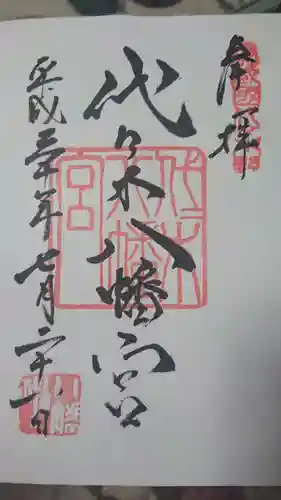 奉拝
代々木八幡宮
平成三十年七月二十一日
代々木八幡宮